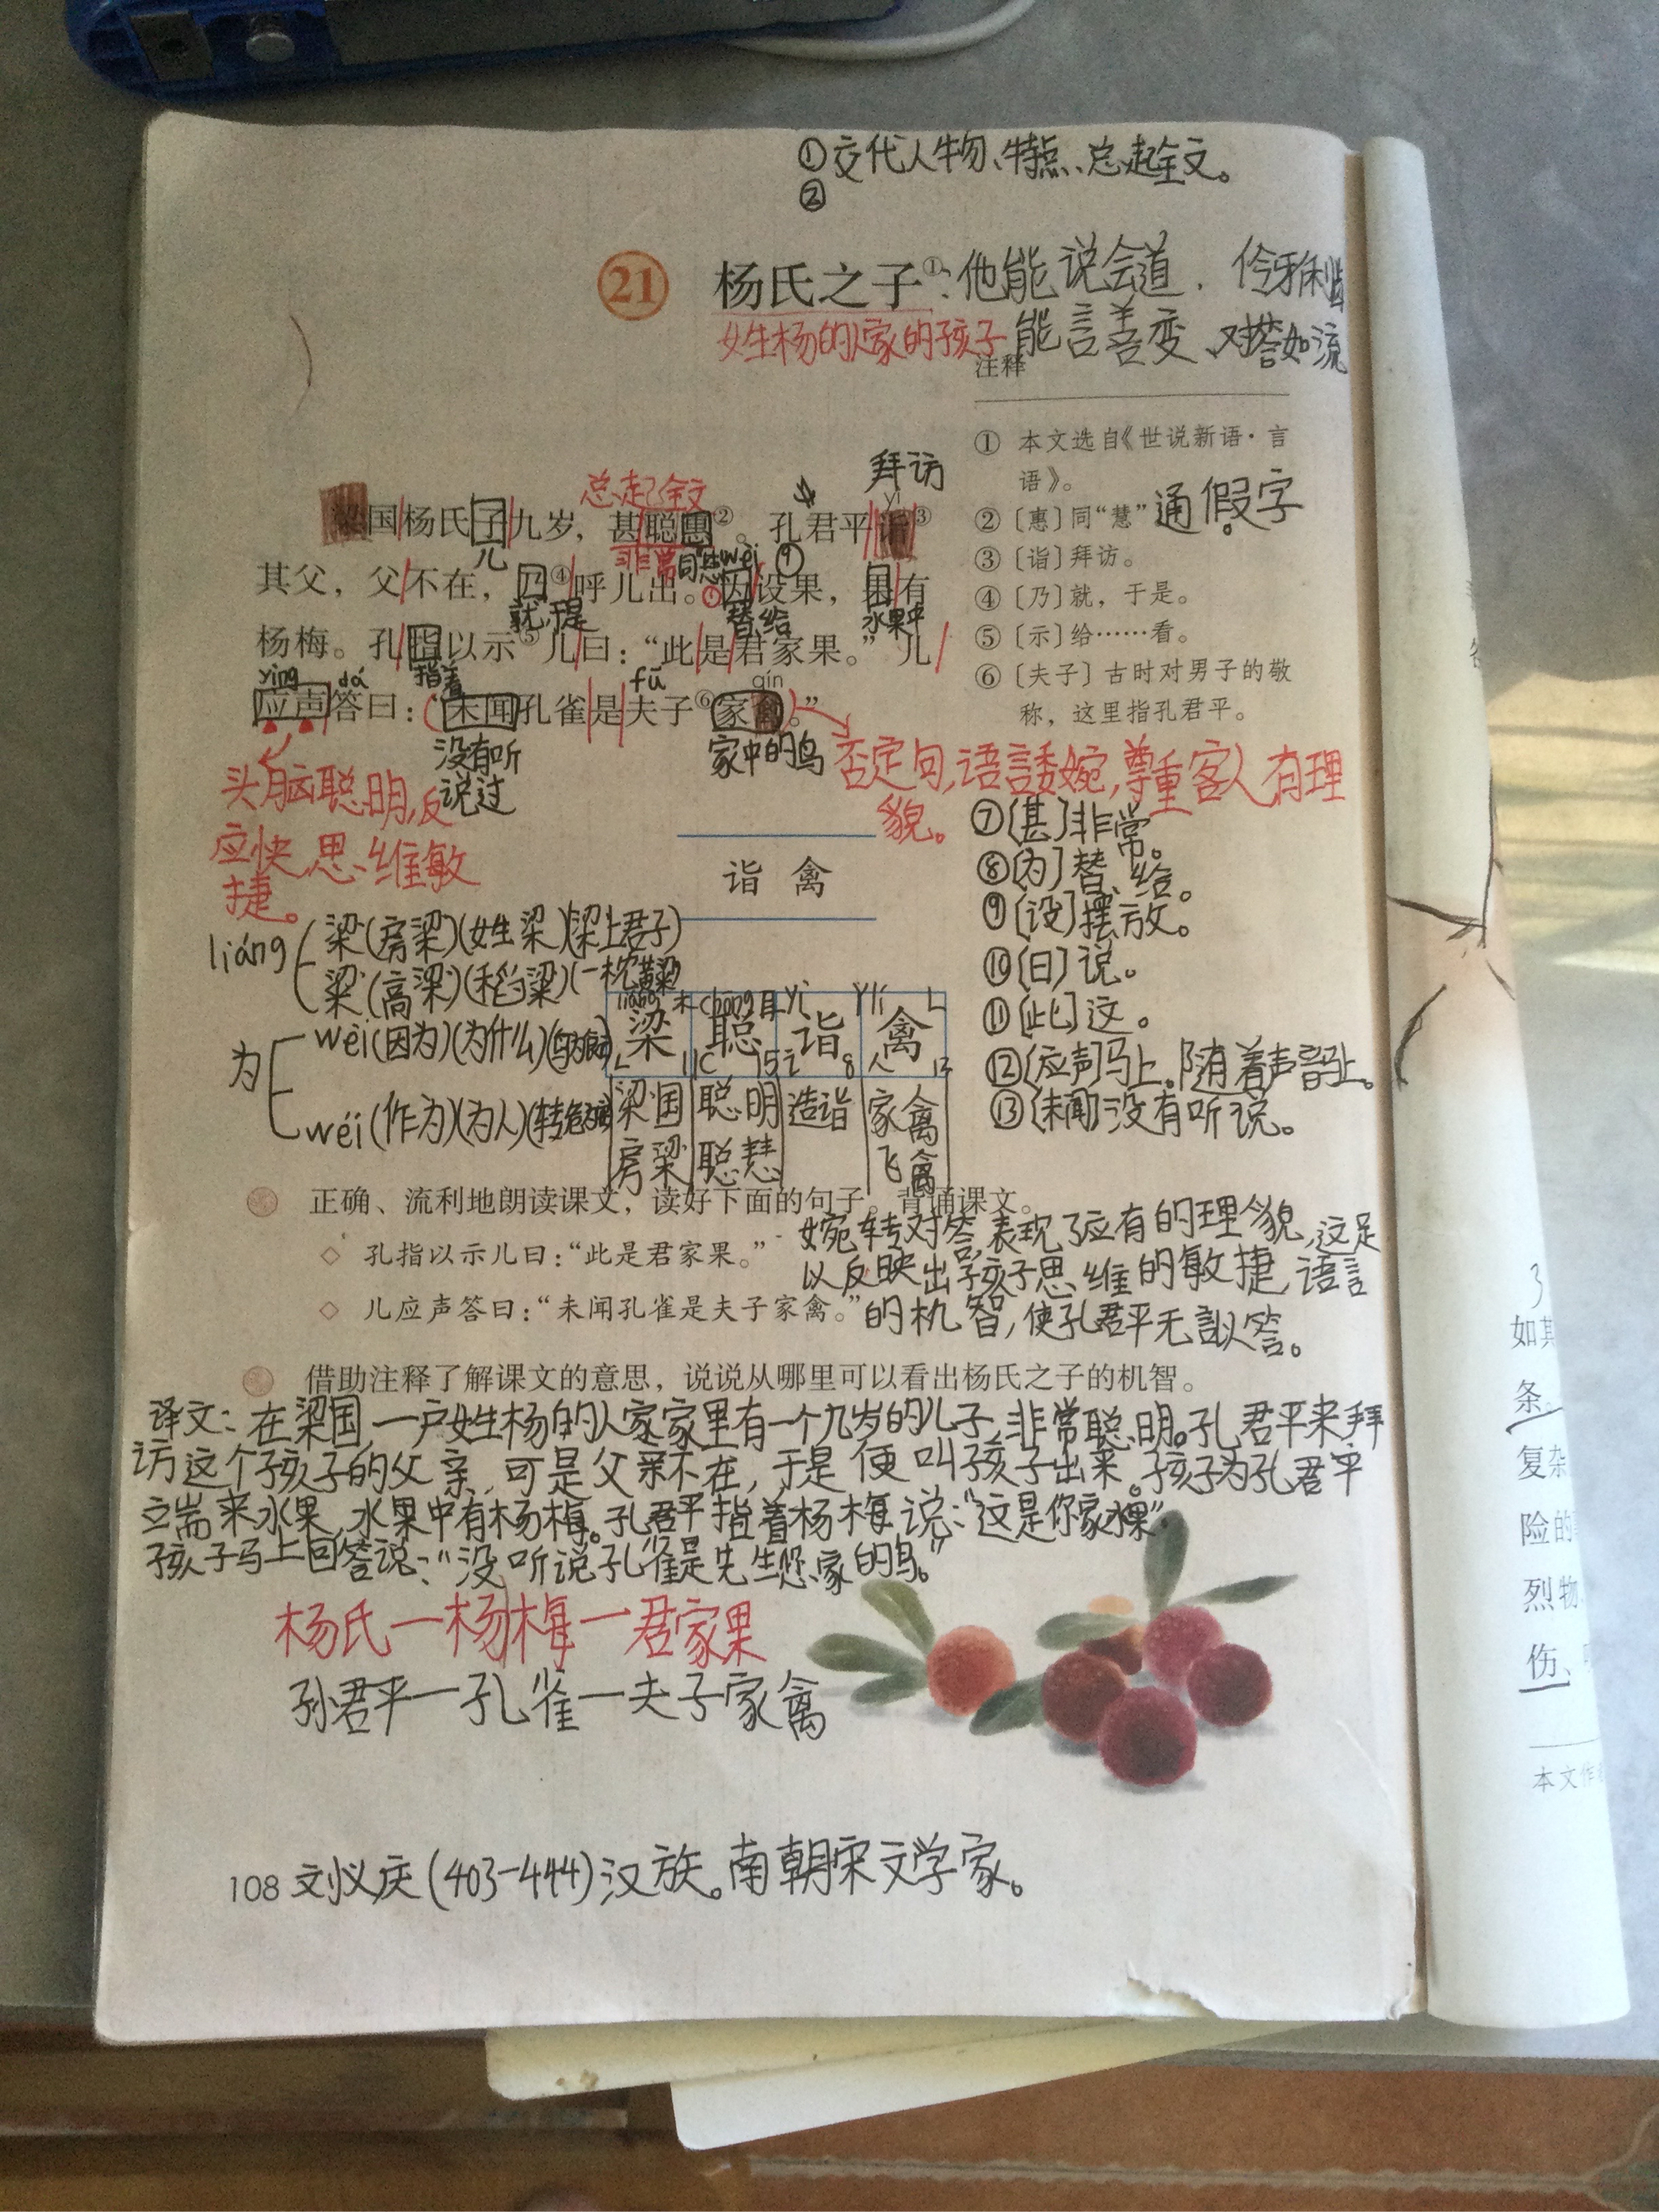 ①交代人物、特点、总起全文。
②
21 杨氏之子①:他能说会道.伶牙俐齿
姓杨的人家的孩子 能言善变、对答如流
注释
① 本文选自《世说新语·言
语》。
②〔惠〕同“慧” 通假字。
③〔诣〕拜访。
④〔乃〕就，于是。
⑤〔示〕给……看。
⑥〔夫子〕古时对男子的敬
称，这里指孔君平。
总起全文 拜访
yì
梁国杨氏子九岁，甚聪惠②。孔君平诣③
儿 非常 同慧 wèi ⑨
其父，父不在，乃④呼儿出。为设果，果有
就,于是 替,给 水果中
杨梅。孔指以示⑤儿曰：“此是君家果。”儿
yìng dá 指着 fū qín
应声答曰：“未闻孔雀是夫子⑥家禽。”
没有听
说过
家中的鸟
否定句,语言委婉,尊重客人有理
貌。
头脑聪明,反
应快,思维敏
捷。
⑦〔甚〕非常。
⑧〔为〕替、给。
⑨〔设〕摆放。
⑩〔曰〕说。
⑪〔此〕这。
⑫〔应声〕马上。随着声音马上。
⑬〔未闻〕没有听说。
诣 禽
liáng 梁(房梁)(姓梁)(梁上君子)
粱(高粱)(稻粱)(一枕黄粱)
为 wèi(因为)(为什么)
wéi(作为)(为人)
梁 聪 诣 禽
梁国 聪明 造诣 家禽
房梁 聪慧 飞禽
正确、流利地朗读课文，读好下面的句子。背诵课文。
◇ 孔指以示儿曰：“此是君家果。”
◇ 儿应声答曰：“未闻孔雀是夫子家禽。”
婉转对答,表现了应有的理貌,这足
以反映出孩子思维的敏捷,语言
的机智,使孔君平无言以答。
借助注释了解课文的意思，说说从哪里可以看出杨氏之子的机智。
译文:在梁国,一户姓杨的人家家里有一个九岁的儿子,非常聪明。孔君平来拜
访这个孩子的父亲,可是父亲不在,于是便叫孩子出来。孩子为孔君平
端来水果,水果中有杨梅。孔君平指着杨梅说:“这是你家水果”
孩子马上回答说:“没听说孔雀是先生您家的鸟。”
杨氏一杨梅一君家果
孙君平一孔雀一夫子家禽
108 刘义庆(403-444)汉族。南朝宋文学家。
如其
条
复杂
险的
烈物
伤、
本文作